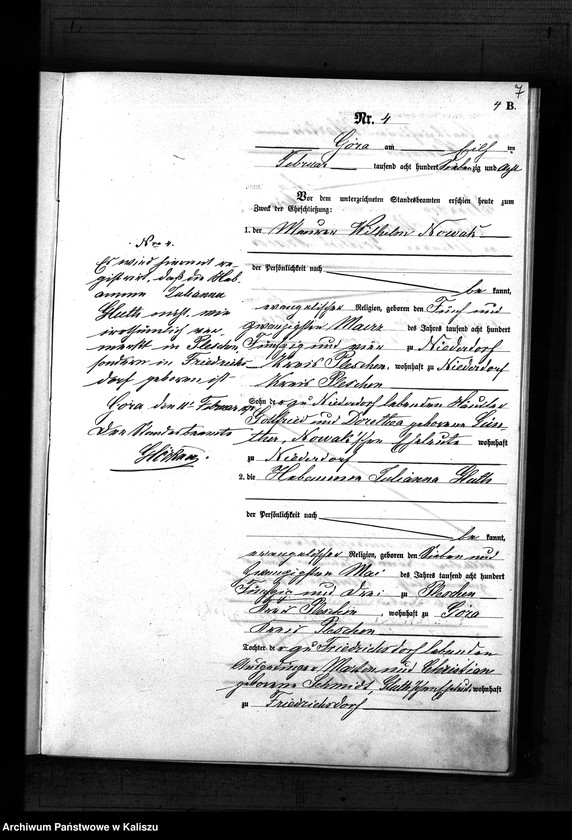 7
4 B.
Nr. 4
Góra am Eilf ten
Februar tausend acht hundert siebenzig und Acht
Vor dem unterzeichneten Standesbeamten erschien heute zum
Zweck der Eheschließung:
1. der Maurer Wilhelm Nowak
der Persönlichkeit nach
be kannt,
evangelischer Religion, geboren den Fünf und
zwanzigsten Maerz des Jahres tausend acht hundert
Fünfzig und vier zu Niederdorf
Kreis Pleschen, wohnhaft zu Niederdorf
Kreis Pleschen
Sohn der zu Niederdorf lebenden Häusler
Gottfried und Dorothea geborene
Nowak'schen Eheleute wohnhaft
zu Niederdorf
2. die Hebamme Julianna Gluth
der Persönlichkeit nach
be kannt,
evangelischer Religion, geboren den Sieben und
zwanzigsten Mai des Jahres tausend acht hundert
Fünfzig und Drei zu Pleschen
Kreis Pleschen, wohnhaft zu Góra
Kreis Pleschen
Tochter der zu Friedrichsdorf lebenden
Ausgedinger Martin und Christian
geborene Schmidt Gluth'schen Eheleute wohnhaft
zu Friedrichsdorf
Nro 4.
Es wird hiermit re-
gistrirt, daß die Heb-
amme Julianna
Gluth nicht, wie
irrthümlich ver-
merkt in Pleschen
sondern in Friedrichs-
dorf geboren ist
Góra den 11t Februar
Der Standesbeamte
Archiwum Państwowe w Kaliszu